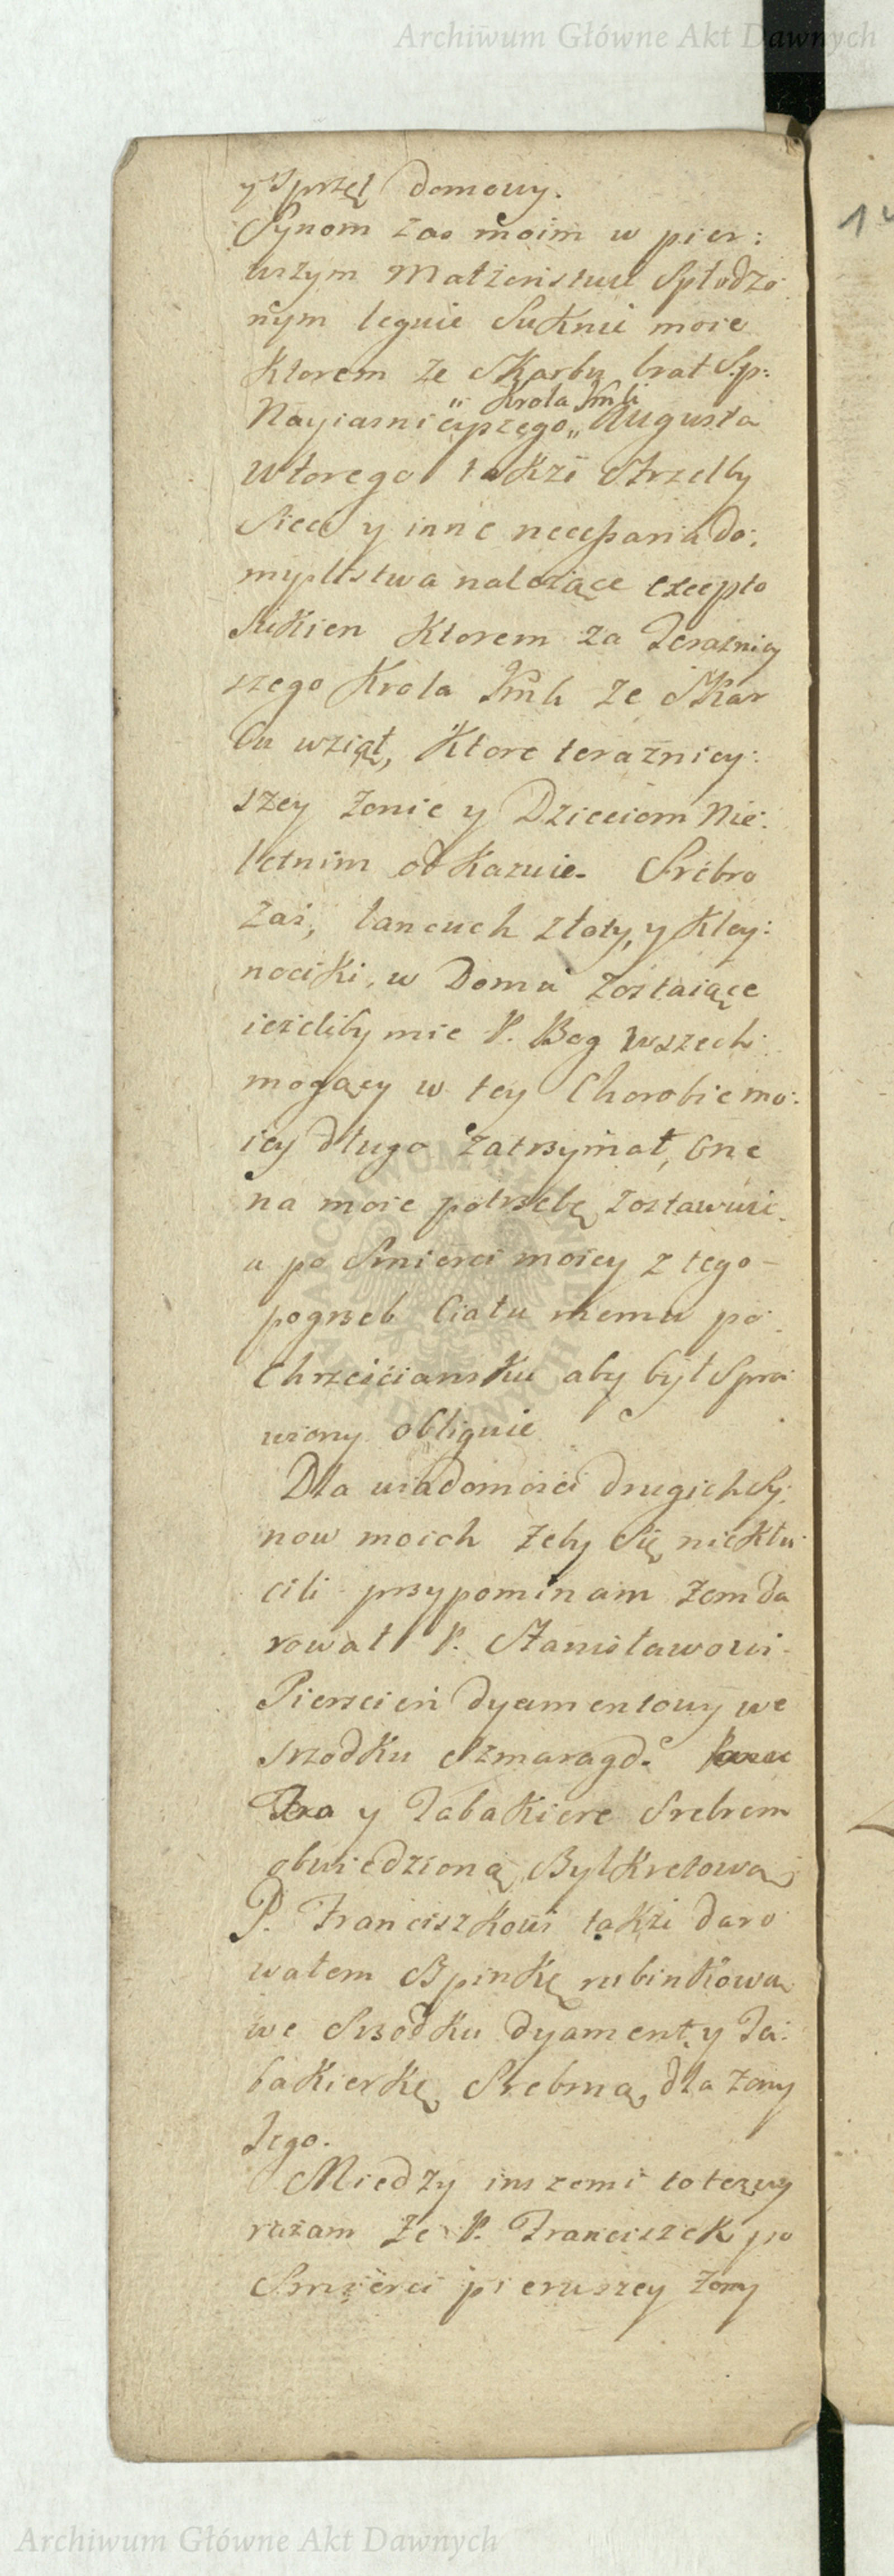 Archiwum Główne Akt Dawnych
y Sprzęt domowy.
Synom zas moim w pier:
wszym Małżenstwie Spłodzo:
nym leguie Suknie moie
Ktorem ze Skarbu brał S.p:
Krola Jmći
Nayiasnieyszego „ Augusta
Wtorego takze Strzelby
Sieci y inne necessaria do:
myslistwa nalezące excepto
Sukien Ktorem za Terazniey
szego Krola Jmći ze Skar
bu wziął, Ktore terazniey:
szey Zonie y Dzieciom Nie:
letnim odkazuie. Srebro
zaś, łancuch złoty, y Kley:
nociki, w Domu Zostaiące
ieżeliby mie P. Bog Wszech:
mogący w tey Chorobie mo:
iey długo zatrzymał, One
na moie potrzebę Zostawuie.
a po Smierci moiey z tego
pogrzeb Ciału memu po:
Chrześciansku aby był Spra:
wiony obliguie
Dla wiadomości drugich Sy:
now moich żeby Się niekłu:
cili przypominam żem da
rował P. Stanisławowi
Pierscień dyamentowy we
srzodku Szmaragd.
y Tabakiere Srebrem
obwiedzioną Bylkretową
P. Franciszkowi takze daro
wałem Spinkę rubinkową
we Srzodku dyament, y Ta:
bakierkę Srebrną, dla żony
Jego.
Miedzy inszemi to też wy
rażam że P. Franciszek po
Smierci pierwszey żony
Archiwum Główne Akt Dawnych